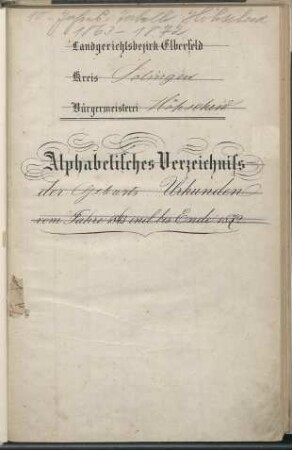 10-Jahrestabelle Höhscheid
1863-1872
Landgerichtsbezirk Elberfeld
Kreis Solingen
Bürgermeisterei Höhscheid
Alphabetisches Verzeichniss
der Geburts Urkunden
vom Jahre 1863 incl. bis Ende 1872